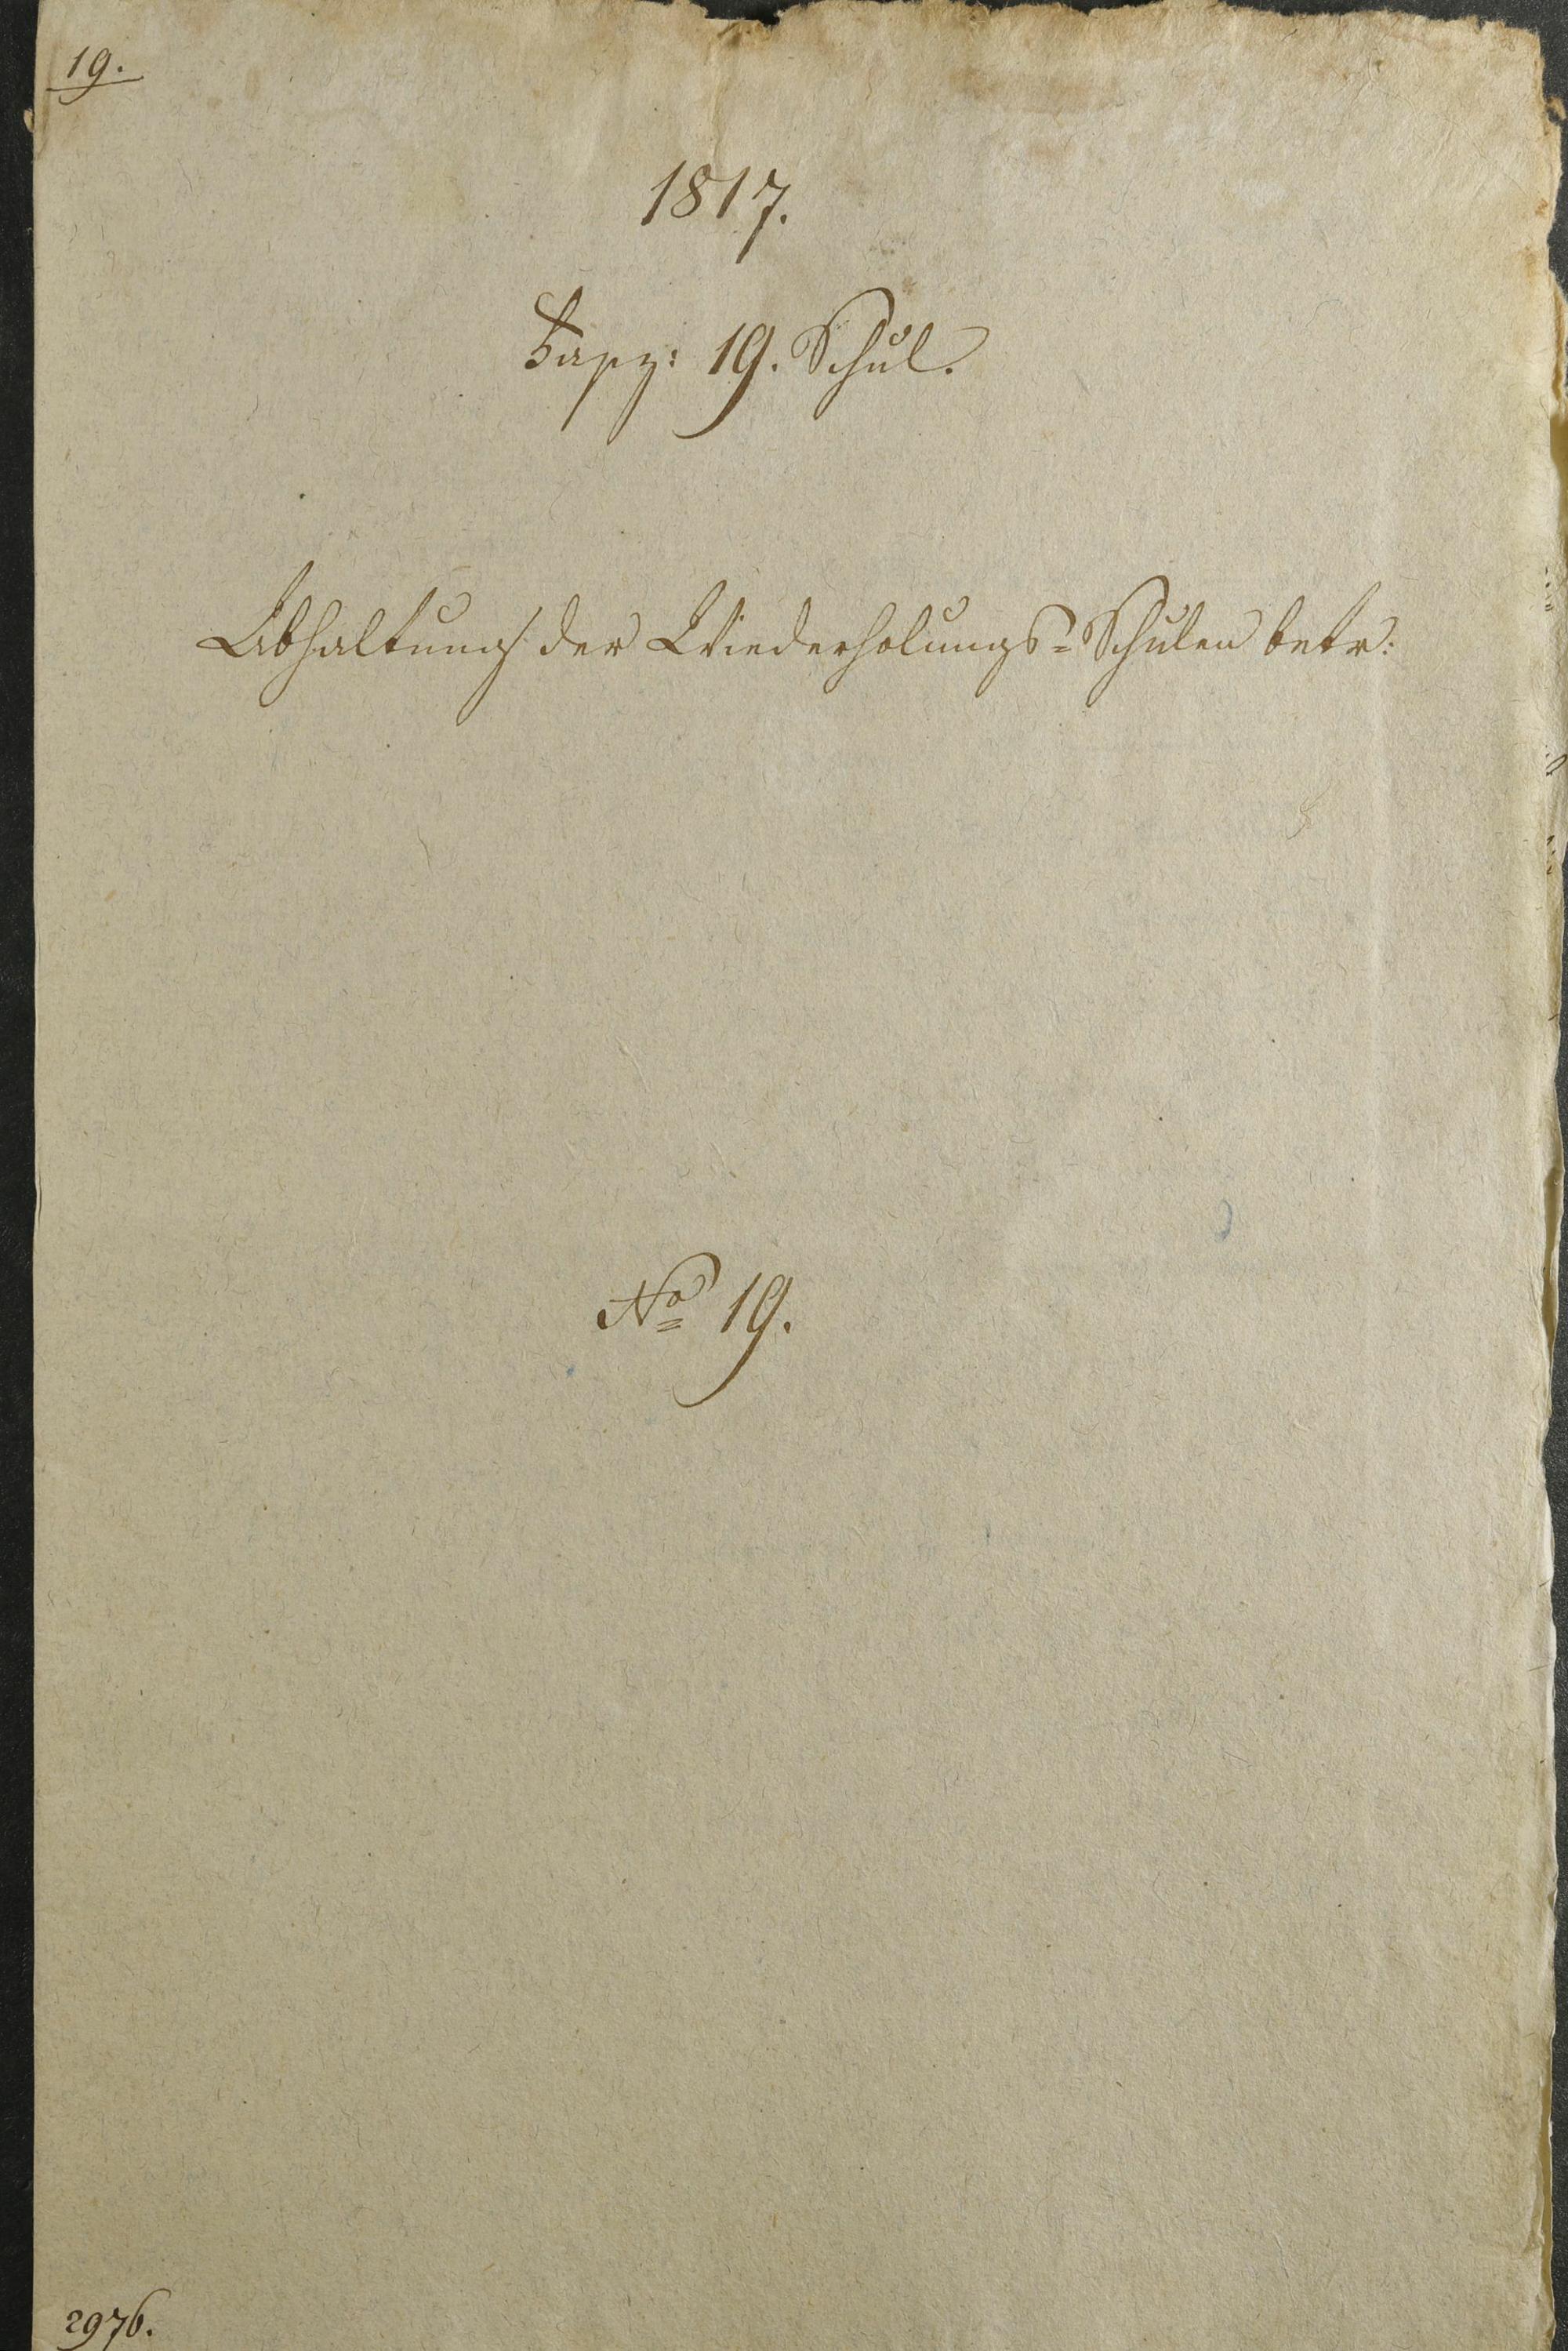 19.
1817.
Fasz: 19. Schul.
Abhaltung der Wiederholungs=Schulen betr:
No 19.
2976.